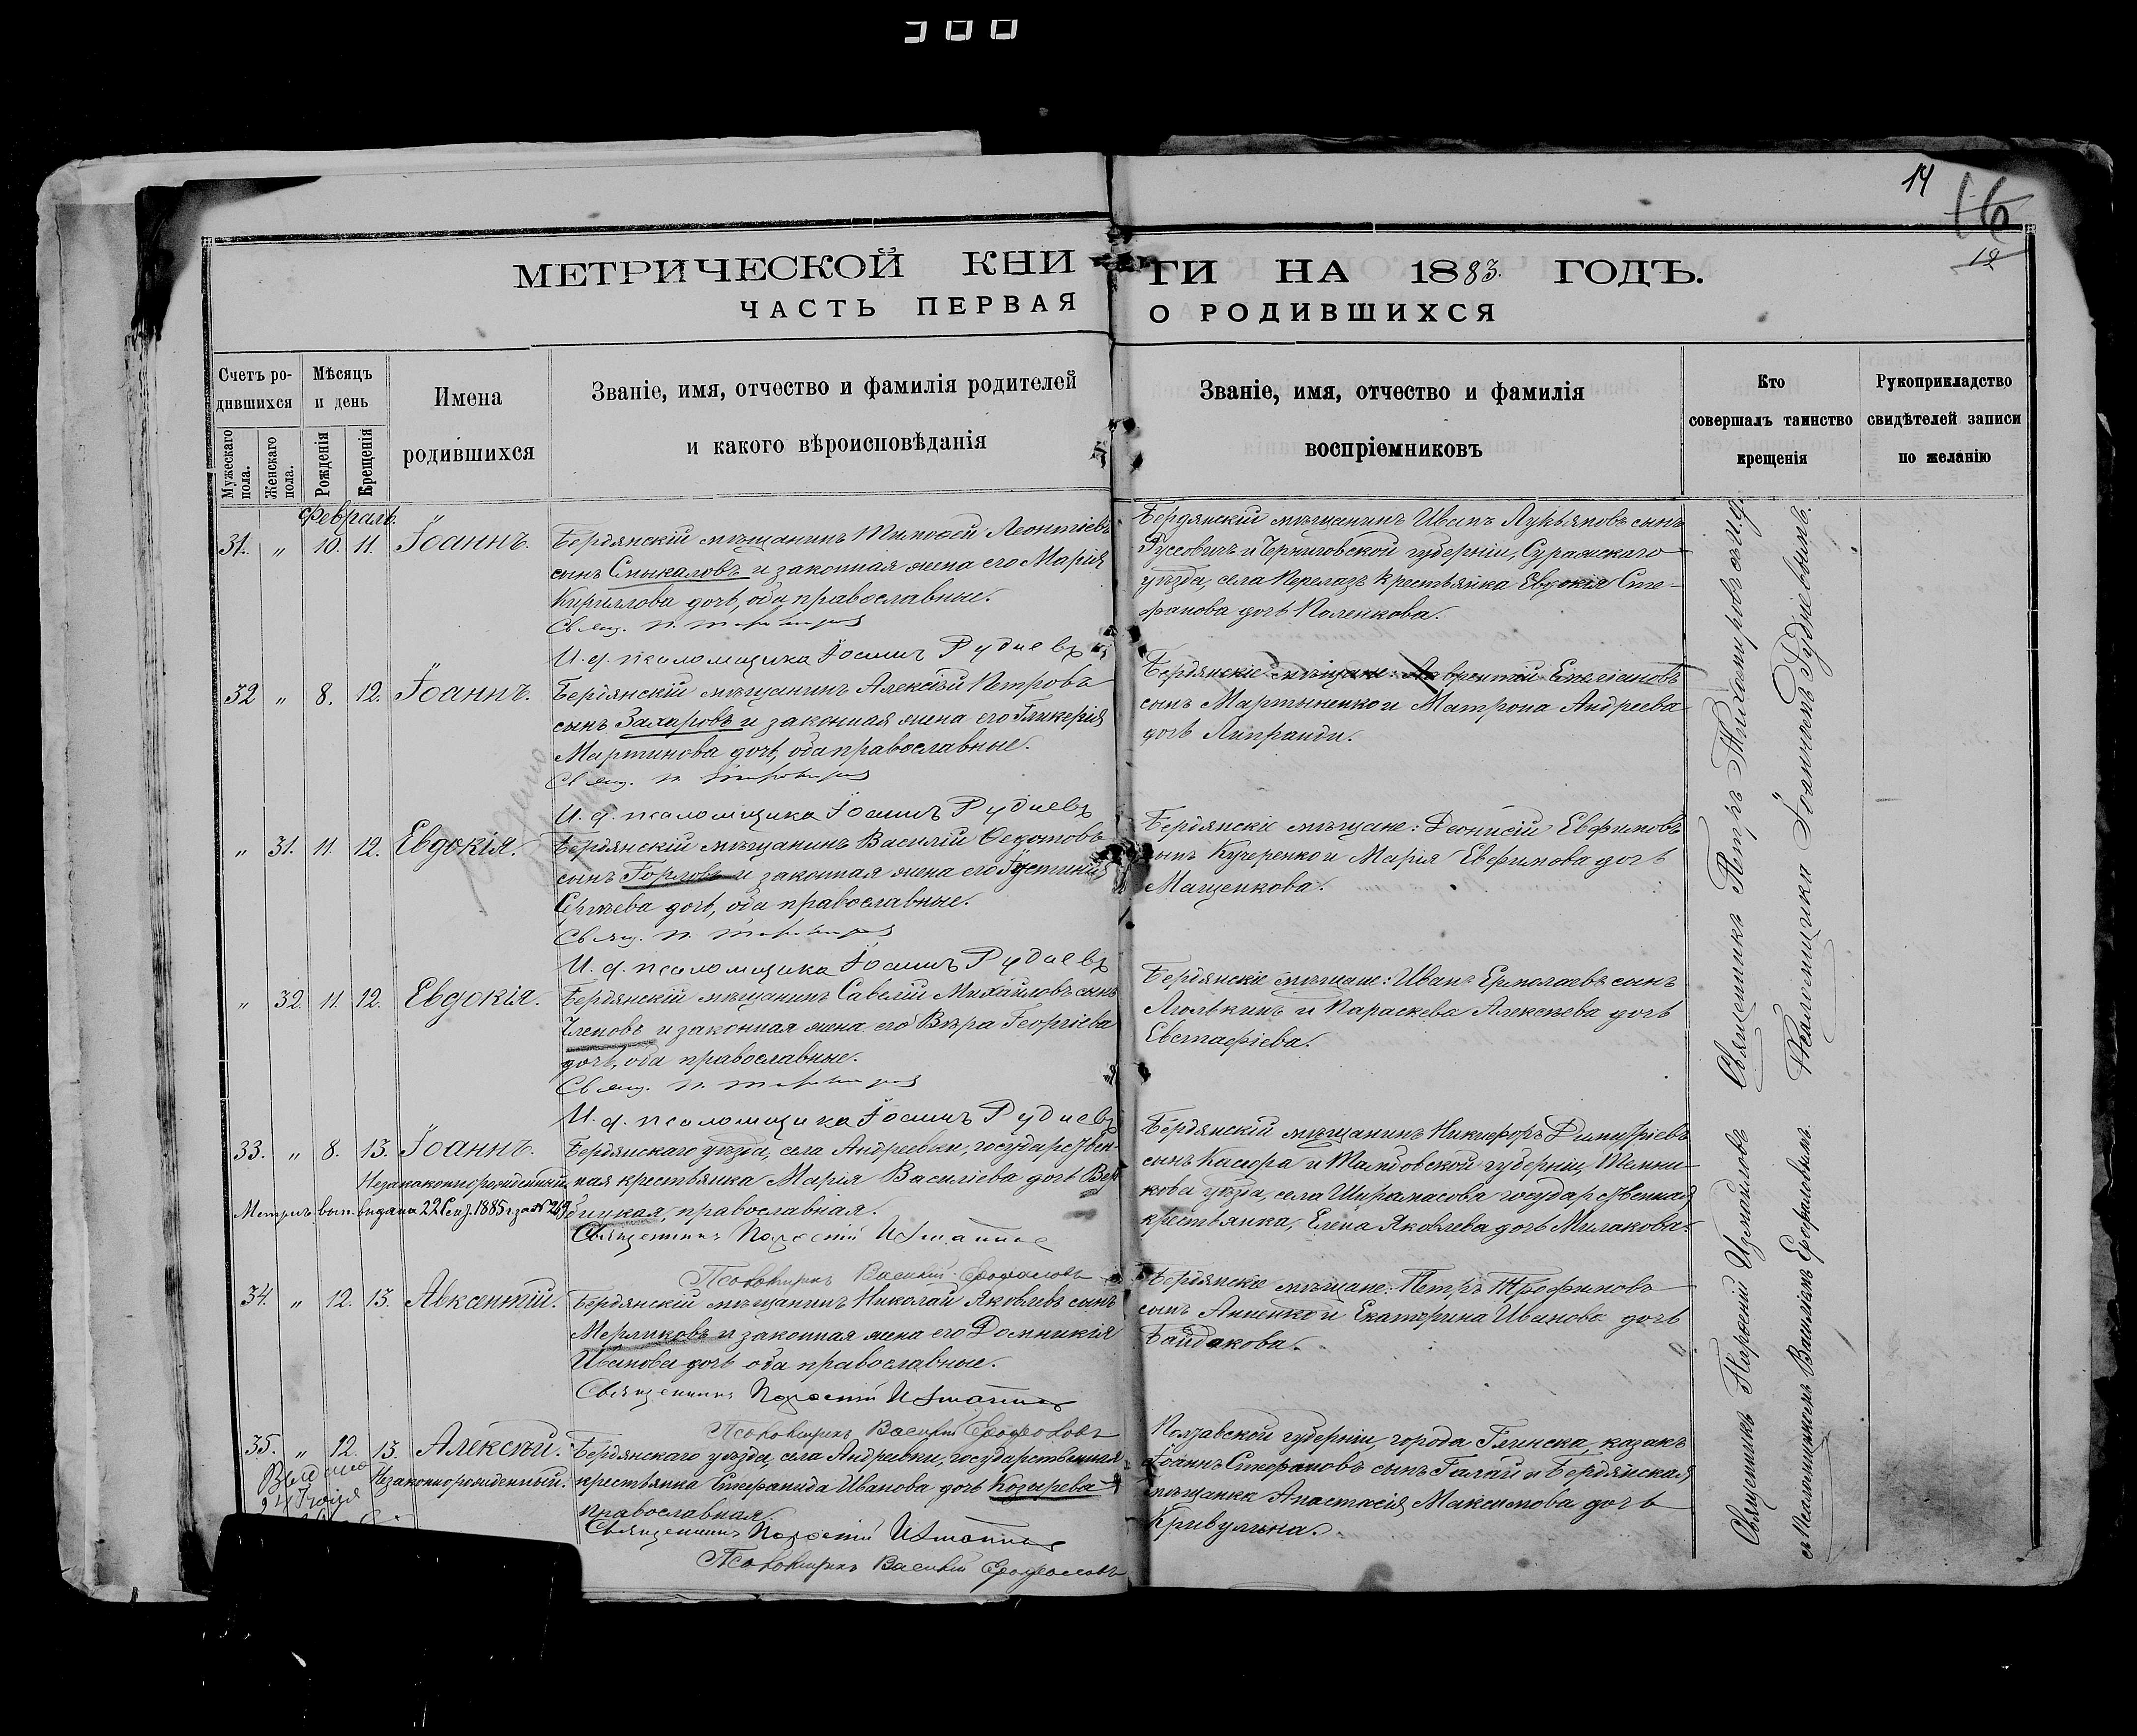 300
14
16
12
МЕТРИЧЕСКОЙ КНИ ГИ НА 1883. ГОДЪ.
ЧАСТЬ ПЕРВАЯ О РОДИВШИХСЯ
Счетъ ро-
дившихся
Мужескаго пола.
Женскаго пола.
Мѣсяцъ
и день
Рожденія
Крещенія
Имена
родившихся
Званіе, имя, отчество и фамилія родителей
и какого вѣроисповѣданія
Званіе, имя, отчество и фамилія
воспріемниковъ
Кто
совершалъ таинство
крещенія
Рукоприкладство
свидѣтелей записи
по желанію
Февраль.
31. " 10. 11. Іоаннъ.
Бердянскій мѣщанинъ Тимоѳей Леонтіевъ
сынъ Смыкаловъ и законная жена его Марія
Кириллова дочь, оба православные.
Свящ. П.
И. д. псаломщика Іоаннъ Рудневъ
Бердянскій мѣщанинъ Иванъ Лукьяновъ сынъ
Руссовичъ и Черниговской губерніи, Суражскаго
уѣзда, села Перелазъ крестьянка Евдокія Сте-
фанова дочь Поленкова.
32 " 8. 12. Іоаннъ.
Бердянскій мѣщанинъ Алексѣй Петровъ
сынъ Захаровъ и законная жена его Гликерія
Мартинова дочь, оба православные.
Свящ. П.
И. д. псаломщика Іоаннъ Рудневъ
Бердянскіе мѣщане: Лаврентій Емеліановъ
сынъ Мартыненко и Матрона Андреева
дочь Липранди.
" 31. 11. 12. Евдокія.
Бердянскій мѣщанинъ Василій Ѳедотовъ
сынъ Горловъ и законная жена его Іустинія
Сергѣева дочь, оба православные.
Свящ. П.
И. д. псаломщика Іоаннъ Рудневъ
Бердянскіе мѣщане: Діонисій Евфимовъ
сынъ Кучеренко и Марія Евфимова дочь
Мащенкова.
" 32. 11. 12. Евдокія.
Бердянскій мѣщанинъ Савелій Михайловъ сынъ
Членовъ и законная жена его Вѣра Георгіева
дочь, оба православные.
Свящ. П.
И. д. псаломщика Іоаннъ Рудневъ
Бердянскіе мѣщане: Иванъ Ермолаевъ сынъ
и Параскева Алексѣева дочь
Евстафіева.
33. " 8. 13. Іоаннъ.
Незаконнорожденный.
Метрич. вып. выдана 22 Сент. 1885 г. за № 269
Бердянскаго уѣзда, села Андреевки, государствен-
ная крестьянка Марія Василіева дочь Вер-
бицкая, православная.
Священникъ Парѳеній Измаиловъ
Псаломщикъ Василій Ерофаловъ
Бердянскій мѣщанинъ Никифоръ Димитріевъ
сынъ Касюра и Тамбовской губерніи, Темни-
кова уѣзда, села Ширамасова государственная
крестьянка, Елена Яковлева дочь Милакова.
34. " 12. 13. Авксентій.
Бердянскій мѣщанинъ Николай Яковлевъ сынъ
Мерликовъ и законная жена его Домникія
Иванова дочь оба православные.
Священникъ Парѳеній Измаиловъ
Псаломщикъ Василій Ерофаловъ
Бердянскіе мѣщане: Петръ Трофимовъ
сынъ Анненко и Екатерина Иванова дочь
Байдакова.
35. " 12. 13. Алексѣй.
Незаконнорожденный.
Выдано
24 Іюня
Бердянскаго уѣзда, села Андреевки, государственная
крестьянка Стефанида Иванова дочь Козырева
православная.
Священникъ Парѳеній Измаиловъ
Псаломщикъ Василій Ерофаловъ
Полтавской губерніи, города Глинска, казакъ
Іоаннъ Стефановъ сынъ Галай и Бердянская
мѣщанка Анастасія Максимова дочь
Кривулина.
Священникъ Петръ Тихомировъ съ и. д.
Псаломщика Іоанномъ Рудневымъ.
Священникъ Парѳеній Измаиловъ
съ Псаломщикомъ Василіемъ Ерофаловымъ.